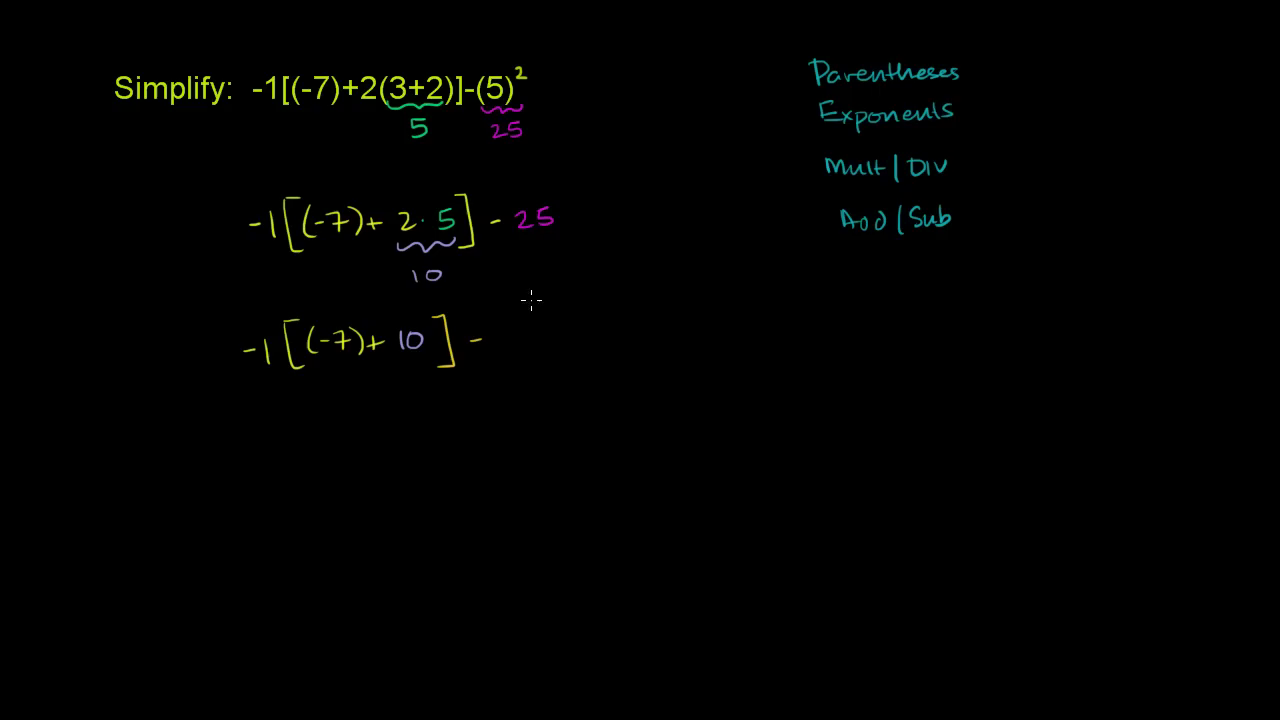 Simplify: -1[(-7)+2(3+2)]-(5)²
5 25
-1[(-7)+ 2·5] - 25
10
-1[(-7)+ 10] -
Parentheses
Exponents
Mult/Div
Add/Sub